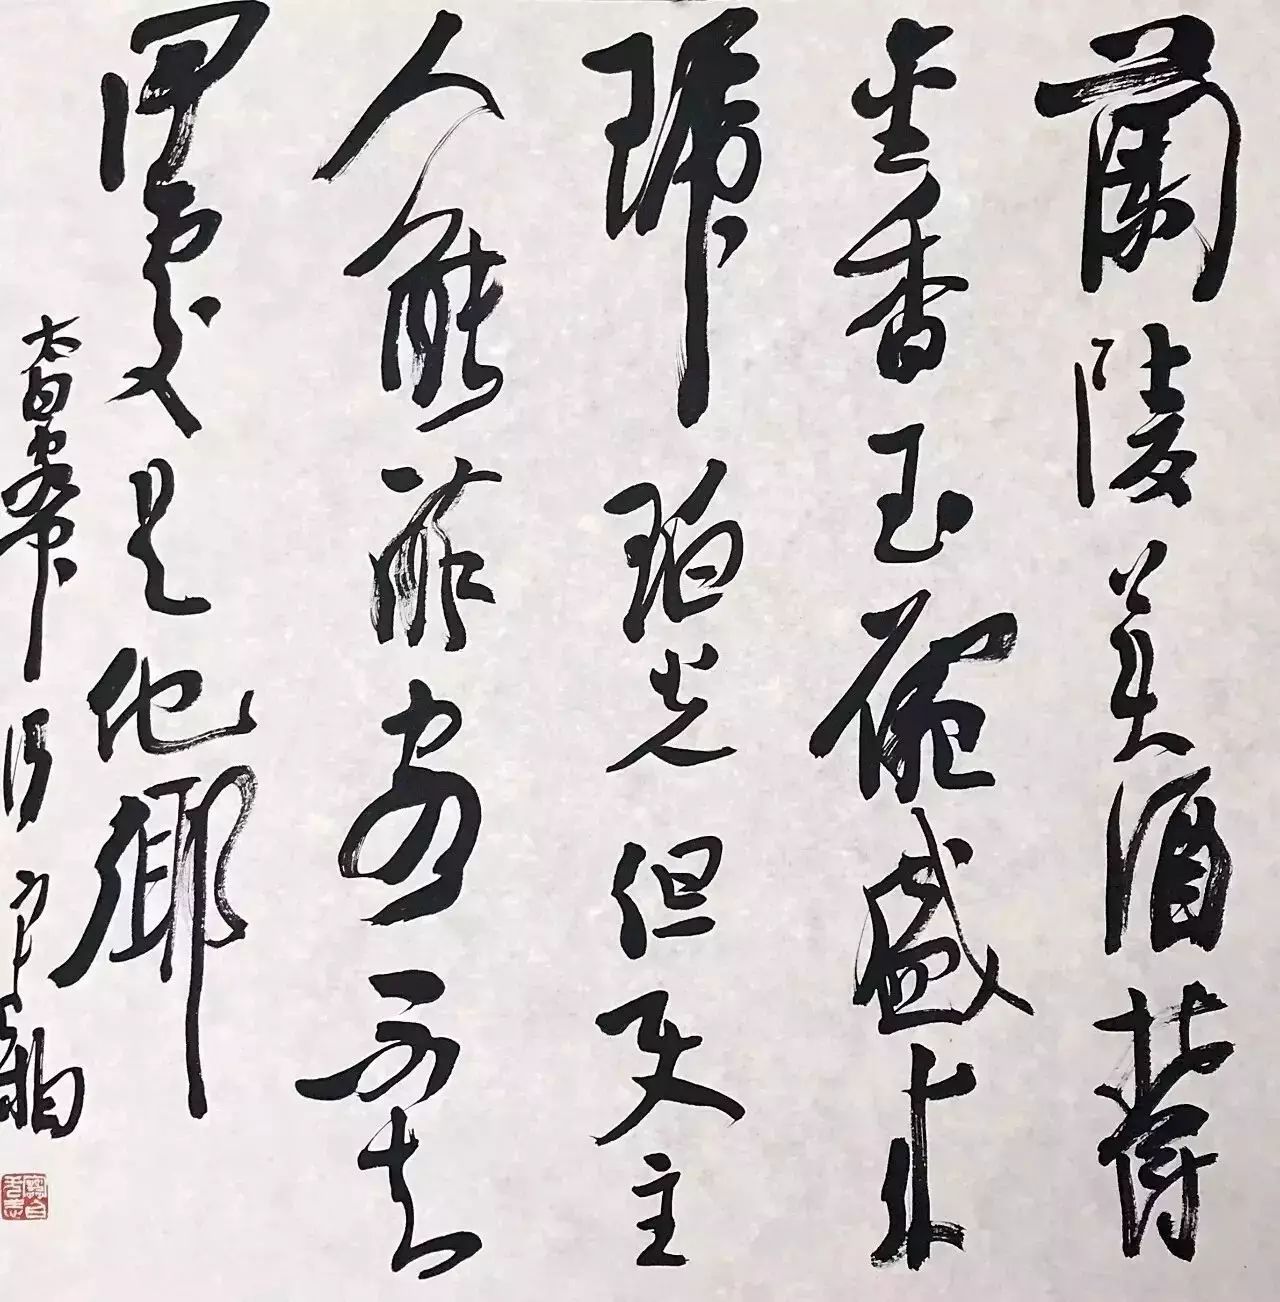 蘭陵美酒鬱
金香玉碗盛來
琥珀光但使主
人能醉客不知
何處是他鄉
太白客中行